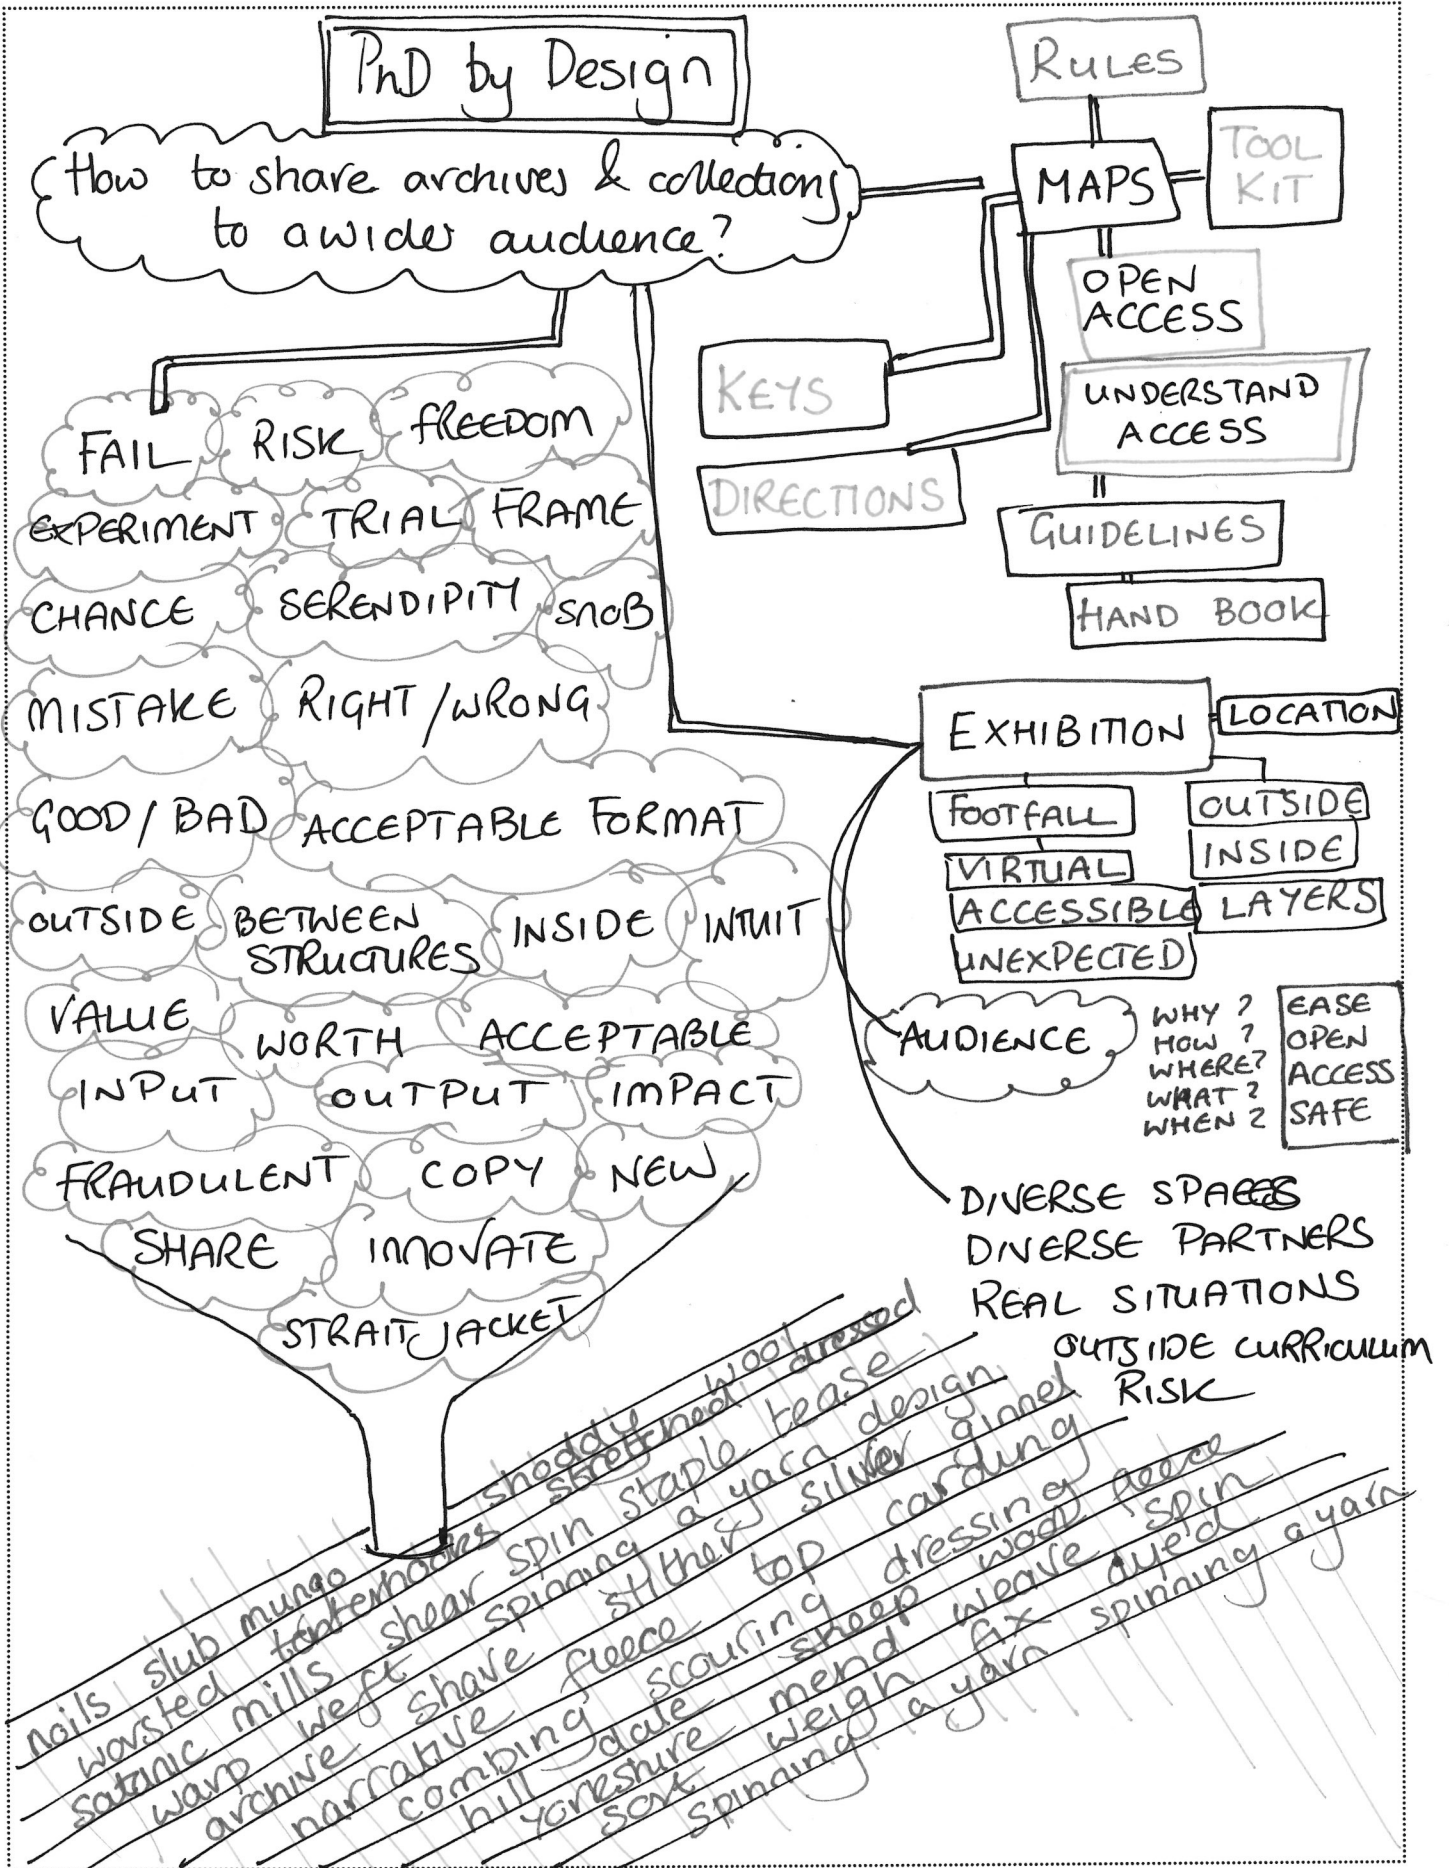 PhD by Design
How to share archives & collections
to a wider audience?
RULES
MAPS
TOOL
KIT
OPEN
ACCESS
KEYS
UNDERSTAND
ACCESS
DIRECTIONS
GUIDELINES
HAND BOOK
FAIL RISK FREEDOM
EXPERIMENT TRIAL FRAME
CHANCE SERENDIPITY SNOB
MISTAKE RIGHT / WRONG
GOOD / BAD ACCEPTABLE FORMAT
OUTSIDE BETWEEN INSIDE INTUIT
STRUCTURES
VALUE WORTH ACCEPTABLE
INPUT OUTPUT IMPACT
FRAUDULENT COPY NEW
SHARE INNOVATE
STRAIT JACKET
EXHIBITION
LOCATION
FOOTFALL
VIRTUAL
ACCESSIBLE
UNEXPECTED
OUTSIDE
INSIDE
LAYERS
AUDIENCE
WHY ?
HOW ?
WHERE?
WHAT ?
WHEN ?
EASE
OPEN
ACCESS
SAFE
DIVERSE SPACES
DIVERSE PARTNERS
REAL SITUATIONS
OUTSIDE CURRICULUM
RISK
nails slub mungo shoddy wool
worsted tenterhooks stretched dressed
satanic mills shear spin staple tease
warp weft spinning a yarn design
archive share slither silver ginnel
narrative fleece top carding
combing scouring dressing
hill dale sheep wool fleece
yorkshire mend weave spin
sort weigh fix dyed
spinning a yarn spinning a yarn